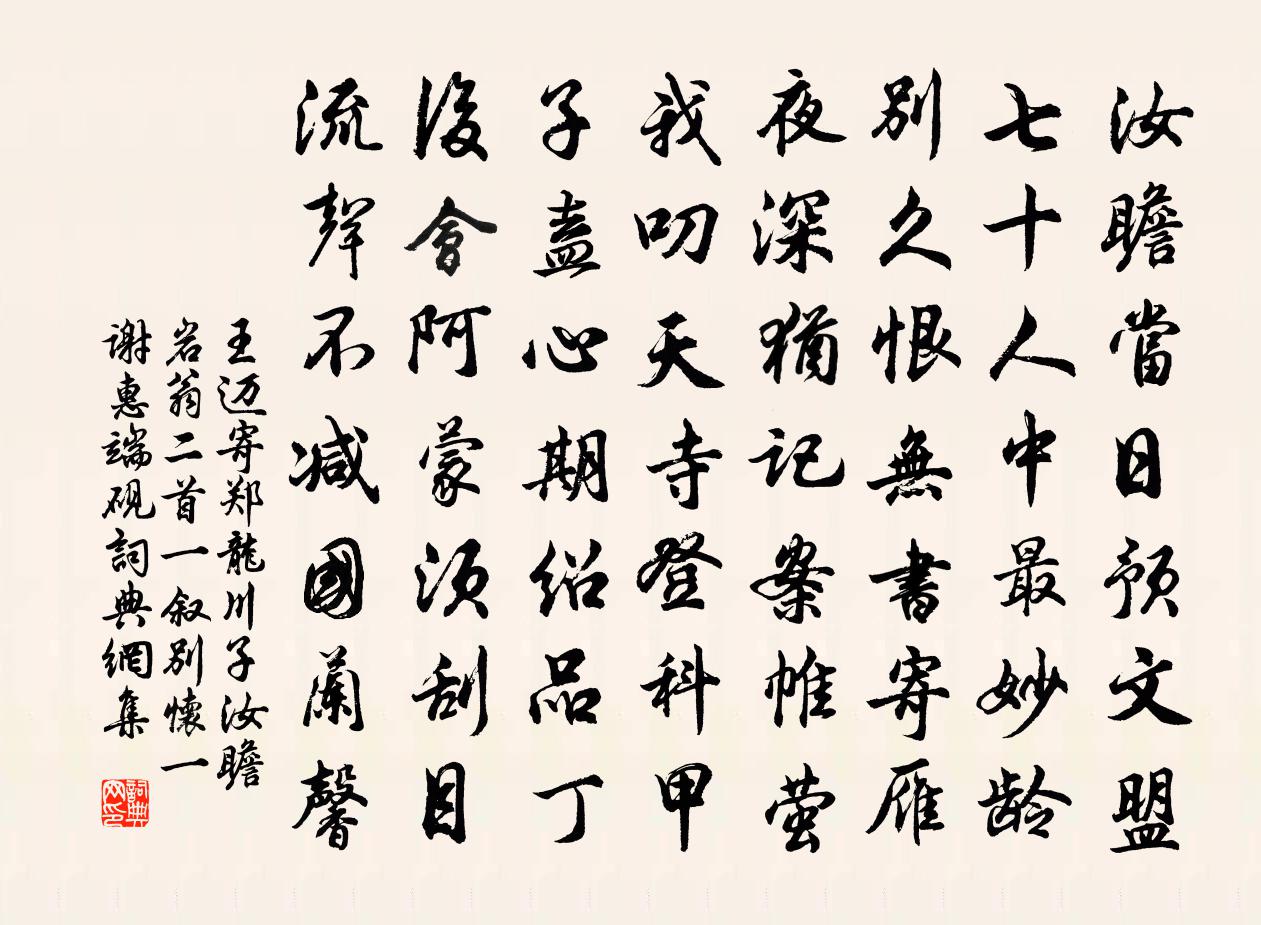 汝瞻當日预文盟
七十人中最妙龄
别久恨無書寄雁
夜深猶记案帷萤
我叨天寺登科甲
子盍心期绍品丁
後會阿蒙须刮目
流聲不减國蘭馨
王迈寄郑龍川子汝瞻
岩翁二首一叙别懷一
谢惠端砚詞典網集
詞典网印